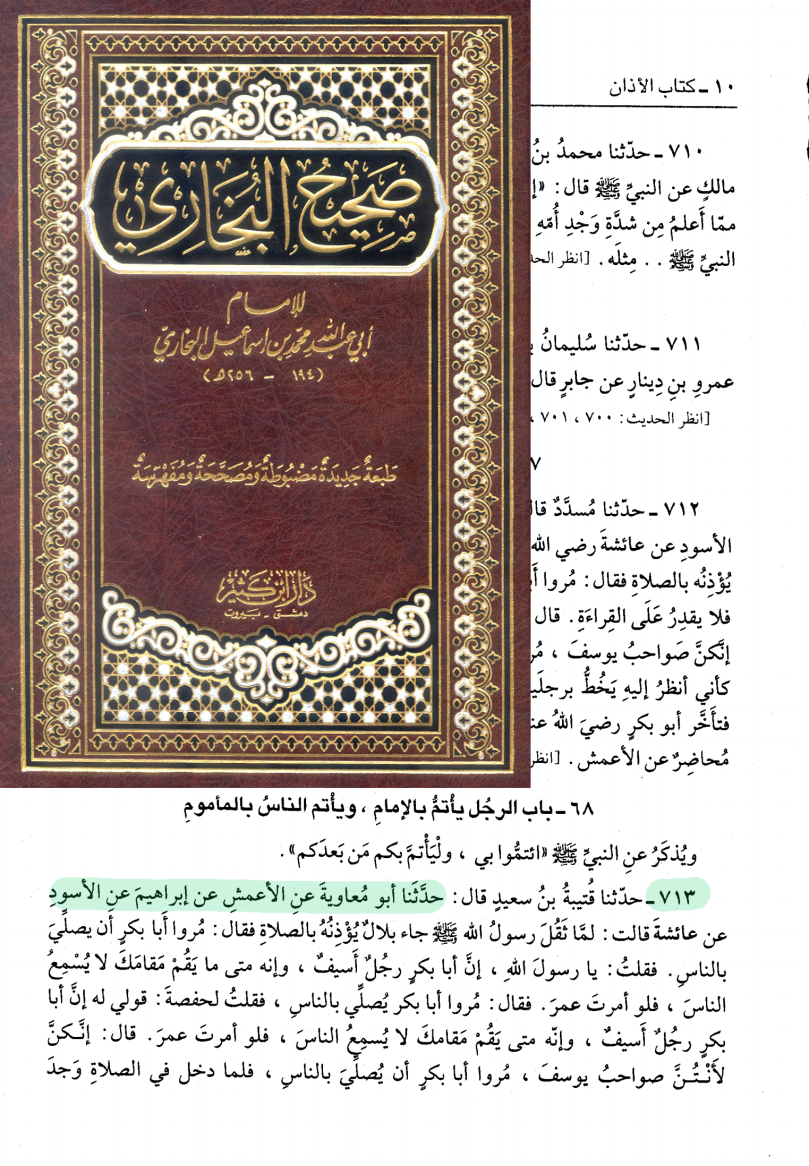 صَحِيحُ البُخَارِي
للإمام
أبي عبد الله محمد بن إسماعيل البخاريّ
(١٩٤ - ٢٥٦هـ)
طَبعَةٌ جَدِيدَةٌ مَضْبُوطَةٌ وَمُصَحَّحَةٌ وَمُفَهْرَسَةٌ
دار ابن كثير
دمشق - بيروت
١٠ - كتاب الأذان
٧١٠ - حدّثنا محمدُ بنُ
مالكٍ عن النبيِّ ﷺ قال: «إ
ممّا أَعلمُ مِن شدَّةِ وَجْدِ أُمّهِ
النبيِّ ﷺ . . مِثلَه. [انظر الحد
٧١١ - حدّثنا سُليمانُ
عمروِ بنِ دِينارٍ عن جابرٍ قال
[انظر الحديث: ٧٠٠، ٧٠١،
٧
٧١٢ - حدّثنا مُسدَّدٌ قا
الأسودِ عن عائشةَ رضي الله
يُؤْذِنُه بالصلاةِ فقال: مُروا أ
فلا يقدِرُ عَلَى القِراءَةِ. قال
إنَّكنَّ صَواحبُ يوسفَ، مُر
كأني أنظرُ إليهِ يَخُطُّ برجلَي
فتأخَّر أبو بكرٍ رضيَ اللهُ عن
مُحاضِرٌ عن الأعمش. [انظر
٦٨ - باب الرجُل يأتمُّ بالإمامِ، ويأتم الناسُ بالمأمومِ
ويُذكَرُ عنِ النبيِّ ﷺ «ائتمُّوا بي، ولْيَأْتمَّ بكم مَن بَعدَكم».
٧١٣ - حدّثنا قُتيبةُ بنُ سعيدٍ قال: حدَّثَنا أبو مُعاويةَ عنِ الأعمشِ عن إبراهيمَ عنِ الأسودِ
عن عائشةَ قالت: لمَّا ثَقُلَ رسولُ الله ﷺ جاء بلالٌ يُؤْذِنُهُ بالصلاةِ فقال: مُروا أبا بكرٍ أن يصلِّيَ
بالناسِ. فقلتُ: يا رسولَ اللهِ، إنَّ أبا بكرٍ رجُلٌ أَسيفٌ، وإنه متى ما يَقُمْ مَقامَكَ لا يُسْمِعُ
الناسَ، فلو أمرتَ عمرَ. فقال: مُروا أبا بكر يُصلِّي بالناسِ، فقلتُ لحفصةَ: قولي له إنَّ أبا
بكرٍ رجُلٌ أَسيفٌ، وإنّه متى يَقُمْ مَقامكَ لا يُسمِعُ الناسَ، فلو أمرتَ عمرَ. قال: إنَّكنَّ
لأَنْتُنَّ صواحبُ يوسفَ، مُروا أبا بكرٍ أن يُصلِّيَ بالناسِ، فلما دخل في الصلاةِ وَجدَ